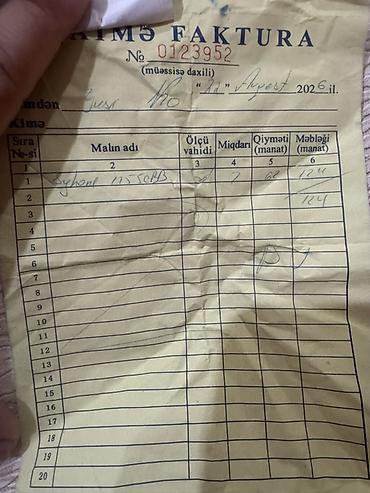 AİMƏ FAKTURA
№ 0123952
(müəssisə daxili)
" " Avqust 2026 il.
mdən Pro
Kimə
Sıra №-si Malın adı Ölçü vahidi Miqdarı Qiyməti (manat) Məbləği (manat)
1 2 3 4 5 6
1 2 62 124
2 124
3
4
5
6
7
8
9
10
11
12
13
14
15
16
17
18
19
20